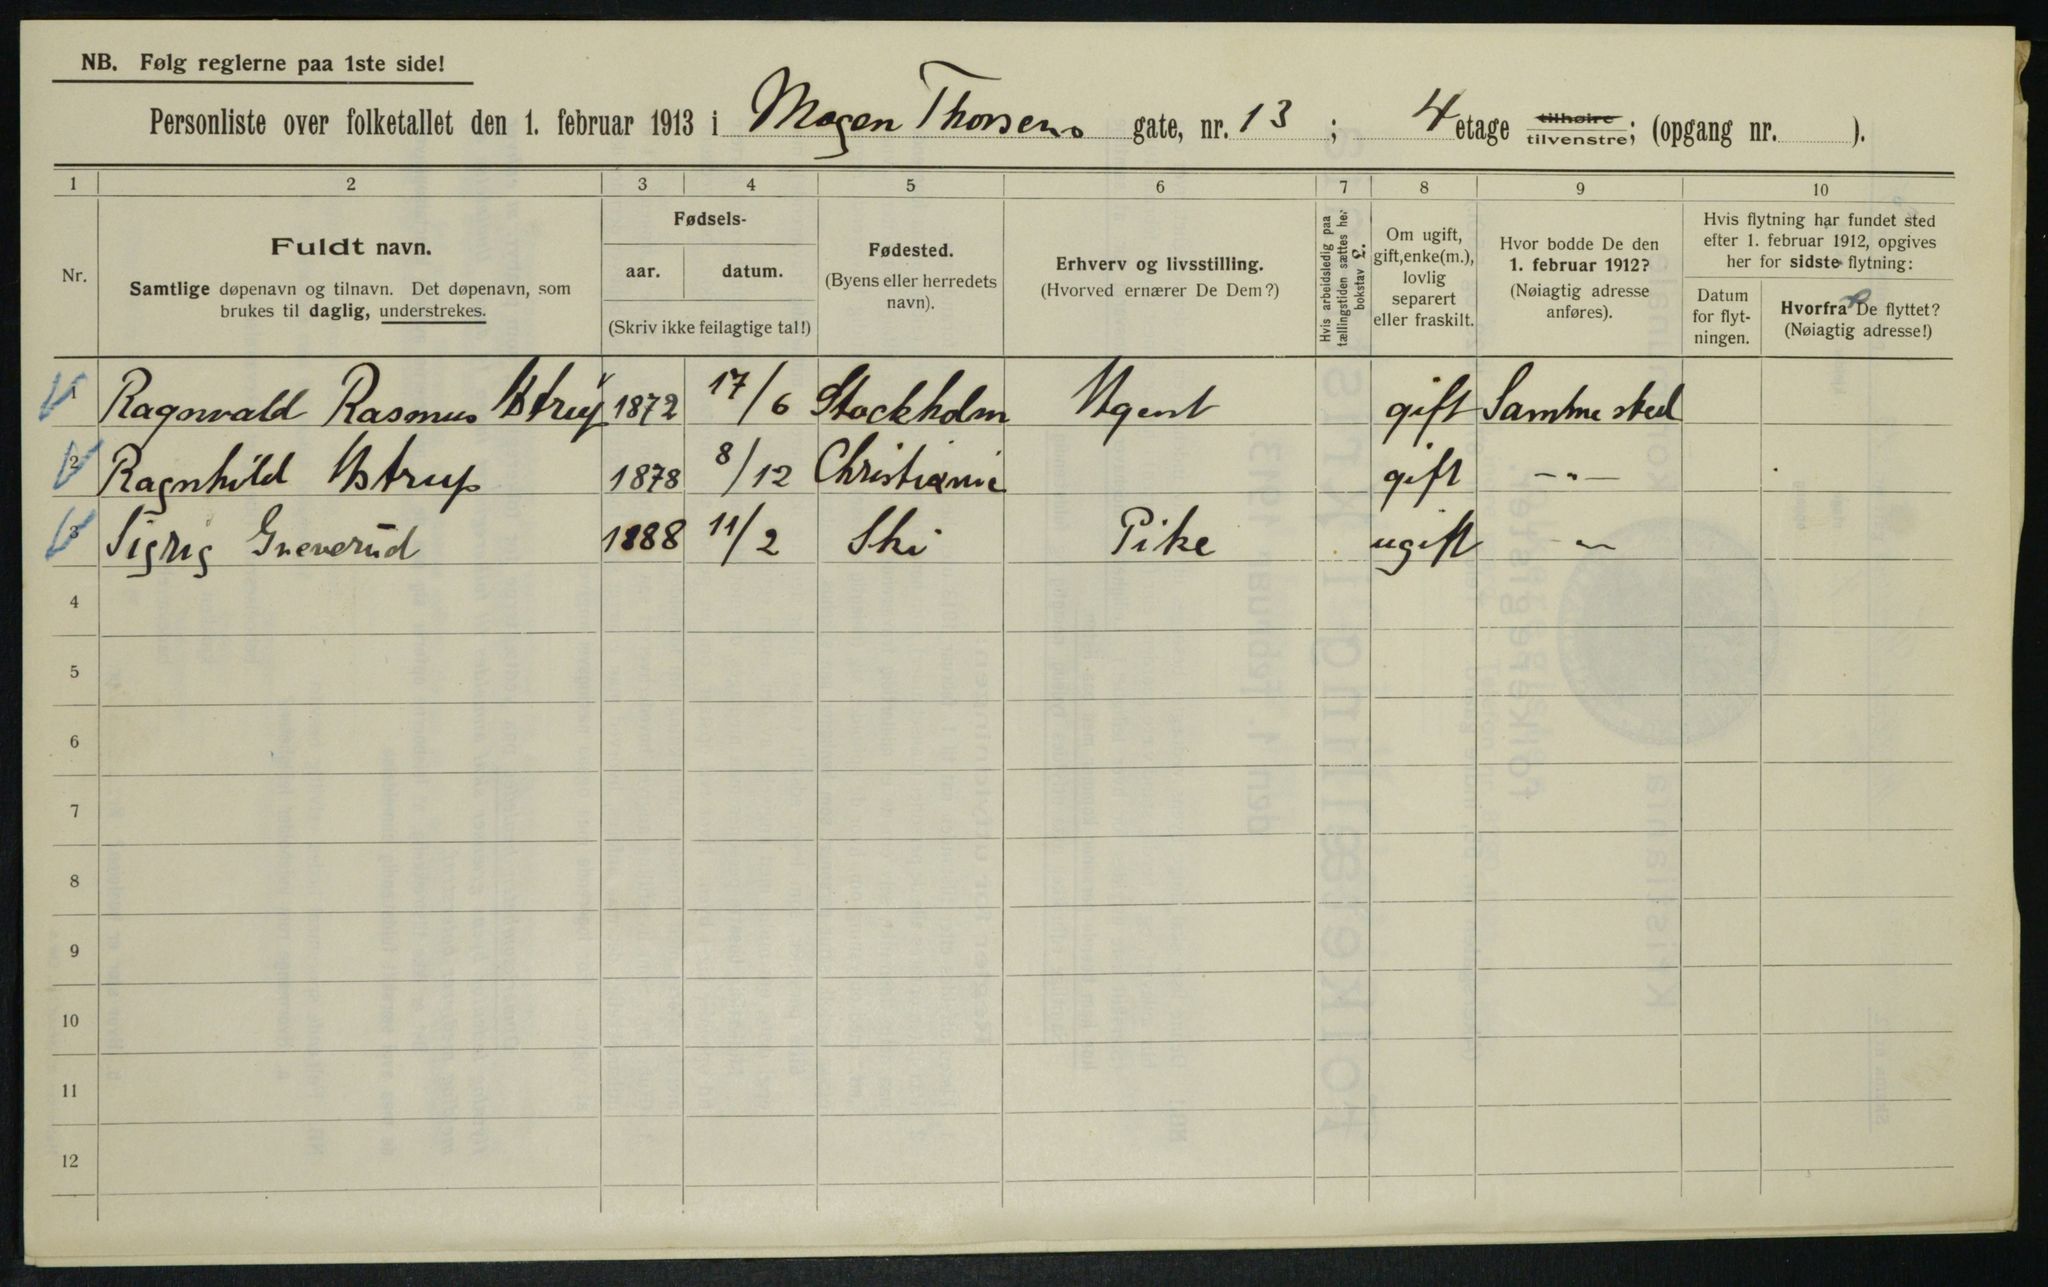 NB. Følg reglerne paa 1ste side!
Personliste over folketallet den 1. februar 1913 i Mogen Thorsens gate, nr. 13; 4 etage tilhøire tilvenstre; (opgang nr. ).
1 2 3 4 5 6 7 8 9 10
Nr.
Fuldt navn.
Samtlige døpenavn og tilnavn. Det døpenavn, som
brukes til daglig, understrekes.
Fødsels-
aar. datum.
(Skriv ikke feilagtige tal!)
Fødested.
(Byens eller herredets
navn).
Erhverv og livsstilling.
(Hvorved ernærer De Dem?)
Hvis arbeidsledig paa
tællingstiden sættes her
bokstav L.
Om ugift,
gift, enke(m.),
lovlig
separert
eller fraskilt.
Hvor bodde De den
1. februar 1912?
(Nøiagtig adresse
anføres).
Hvis flytning har fundet sted
efter 1. februar 1912, opgives
her for sidste flytning:
Datum
for flyt-
ningen.
Hvorfra De flyttet?
(Nøiagtig adresse!)
1 Ragnvald Rasmus Astrup 1872 17/6 Stockholm Agent gift Samme sted
2 Ragnhild Astrup 1878 8/12 Christiania gift -"-
3 Sigrig Gneverud 1888 11/2 Ski Pike ugift -"-
4
5
6
7
8
9
10
11
12